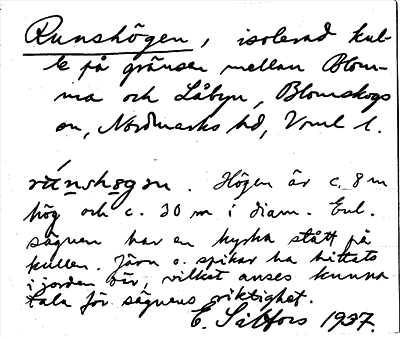 Runshögen, isolerad kul-
le på gränsen mellan Blom-
ma och Låbyn, Blomskogs
sn, Nordmarks hd, Vrml l.
Högen är c. 8 m
hög och c. 30 m i diam. Enl.
sägnen har en kyrka stått på
kullen. Järn o. spikar ha hittats
i jorden där, vilket anses kunna
tala för sägnens riktighet.
E. 1937.